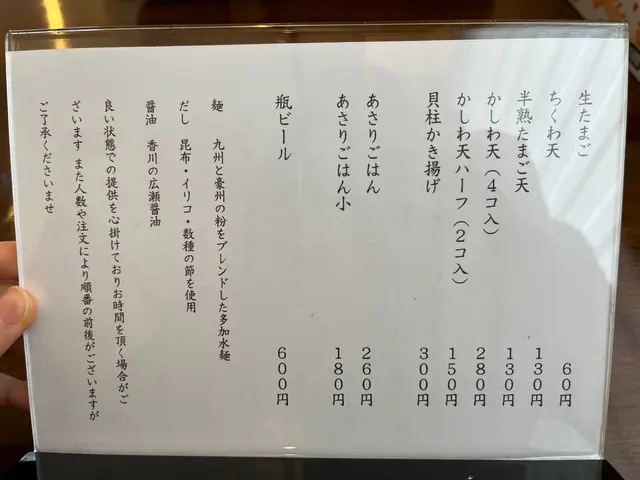 生たまご 60円
ちくわ天 130円
半熟たまご天 130円
かしわ天（4コ入） 280円
かしわ天ハーフ（2コ入） 150円
貝柱かき揚げ 300円
あさりごはん 260円
あさりごはん小 180円
瓶ビール 600円
麺 九州と豪州の粉をブレンドした多加水麺
だし 昆布・イリコ・数種の節を使用
醤油 香川の広瀬醤油
良い状態での提供を心掛けておりお時間を頂く場合がご
ざいます また人数や注文により順番の前後がございますが
ご了承くださいませ